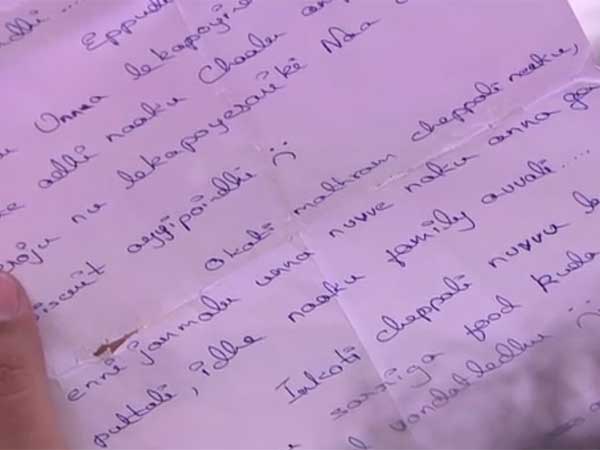 Eppudu
Unna lekapoyina
adhi naaku Chaalu
roju nu lekapoyesariki Naa
biscuit ayyipoindhi :(
Okati mathram cheppali naaku,
enni janmalu unna nuvve naku anna ga
puttali, idhe naaku family avvali....
Inkoti cheppali nuvvu
saraiga food kuda
vandatledhu :(